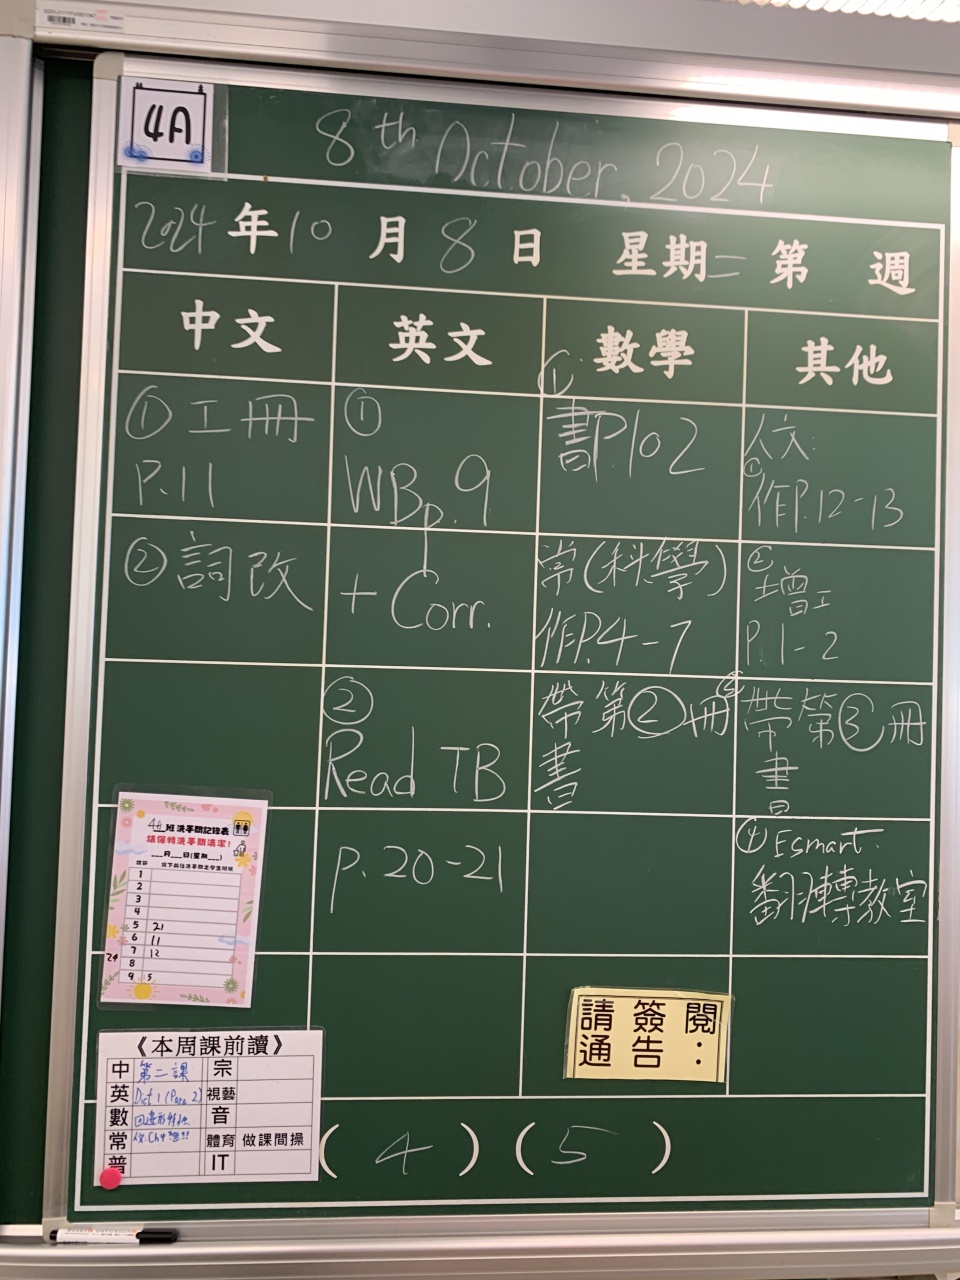 4A
8th October, 2024
2024年10月8日 星期二 第 週
中文 英文 數學 其他
① 工冊
P.11
② 詞改
①
WB p.9
+ Corr.
②
Read TB
p.20-21
①
書P.102
常(科學)
作P.4-7
帶第②冊
書
人文:
①
作P.12-13
②
增工
P.1-2
③
帶第③冊
書
④ Esmart.
翻轉教室
4A班洗手間記錄表
請保持洗手間清潔!
___月___日(星期___)
1
2
3
4
5 21
6 11
7 12
24 8
9 5
《本周課前讀》
中 第二課 宗
英 Dict 1 (Para 2) 視藝
數 音
常 體育 做課間操
普 IT
請簽閱
通告:
( 4 ) ( 5 )